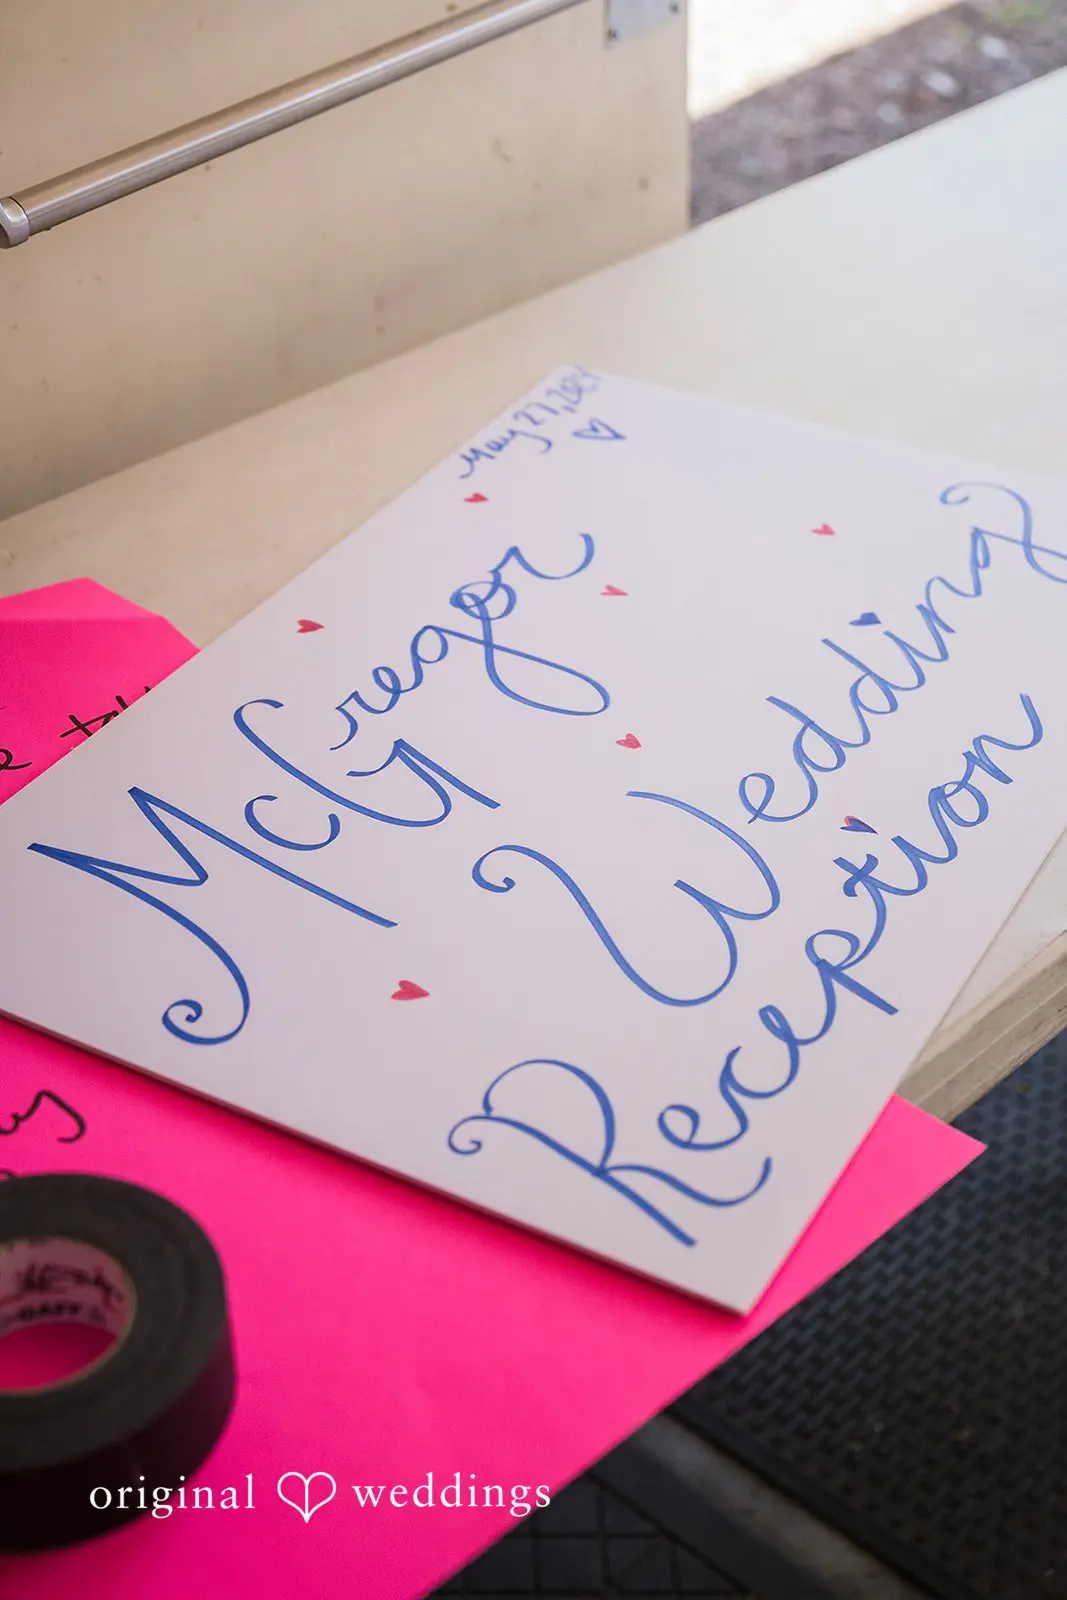 May 27, 2021
McGregor
Wedding
Reception
original weddings